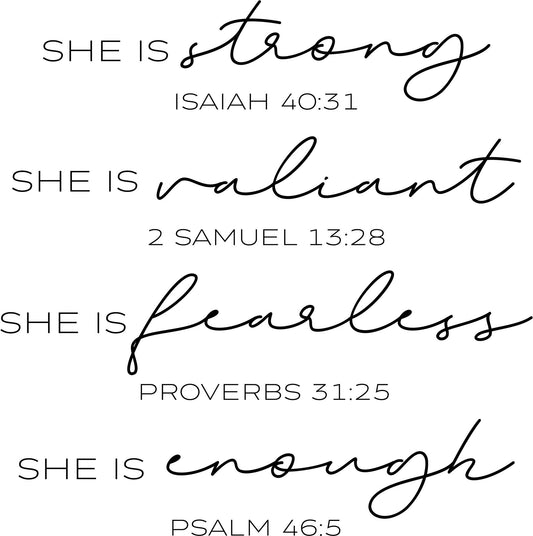 SHE IS strong
ISAIAH 40:31
SHE IS valiant
2 SAMUEL 13:28
SHE IS fearless
PROVERBS 31:25
SHE IS enough
PSALM 46:5